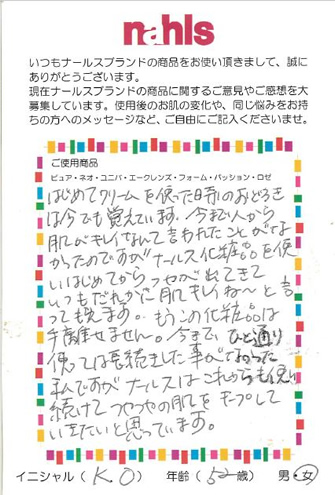 nahls
いつもナールスブランドの商品をお使い頂きまして、誠に
ありがとうございます。
現在ナールスブランドの商品に関するご意見やご感想を大
募集しています。使用後のお肌の変化や、同じ悩みをお持
ちの方へのメッセージなど、ご自由にご記入くださいませ。
ご使用商品
ピュア・ネオ・ユニバ・エークレンズ・フォーム・パッション・ロゼ
はじめてクリームを使った時のおどろき
は今でも覚えています。今まで人から
肌がキレイなんて言われたことがな
かったのですがナールス化粧品を使
いはじめてからつやが出てきて
いつもだれかに肌キレイね〜と言
ってもらえます。もうこの化粧品は
手離せません。今まで ひと通り
使っては長続きした事がなかった
私ですがナールスはこれからも使い
続けてつやつやの肌をキープして
いきたいと思っています。
イニシャル ( K.O ) 年齢 ( 52歳 ) 男・女